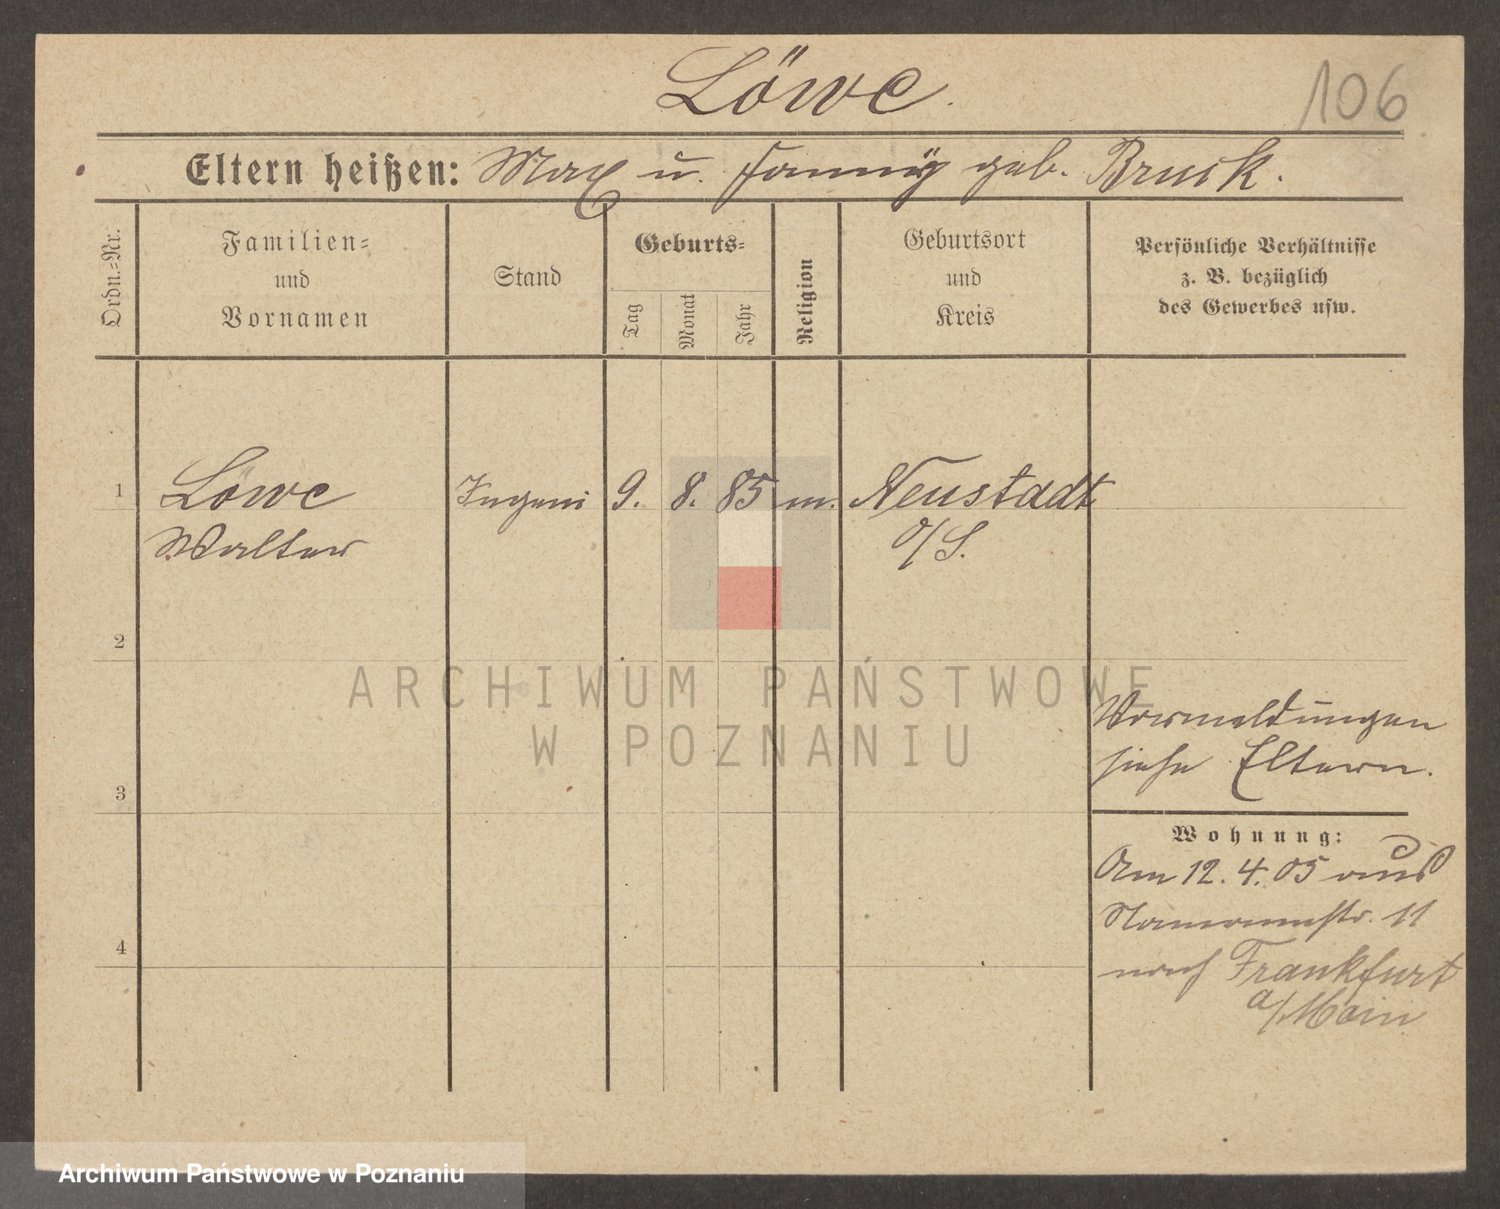 Löwe.
106
Eltern heißen: Max u. Fanny geb. Bruck.
Ordn.=Nr.
Familien=
und
Vornamen
Stand
Geburts=
Tag
Monat
Jahr
Religion
Geburtsort
und
Kreis
Persönliche Verhältnisse
z. B. bezüglich
des Gewerbes usw.
1 Löwe 9. 8. 85 m. Neustadt
Walter O/S.
2
ARCHIWUM PAŃSTWOWE
W POZNANIU
Vormeldungen
siehe Eltern.
3
Wohnung:
Am 12. 4. 05 aus
11
4
nach Frankfurt
a/Main
Archiwum Państwowe w Poznaniu